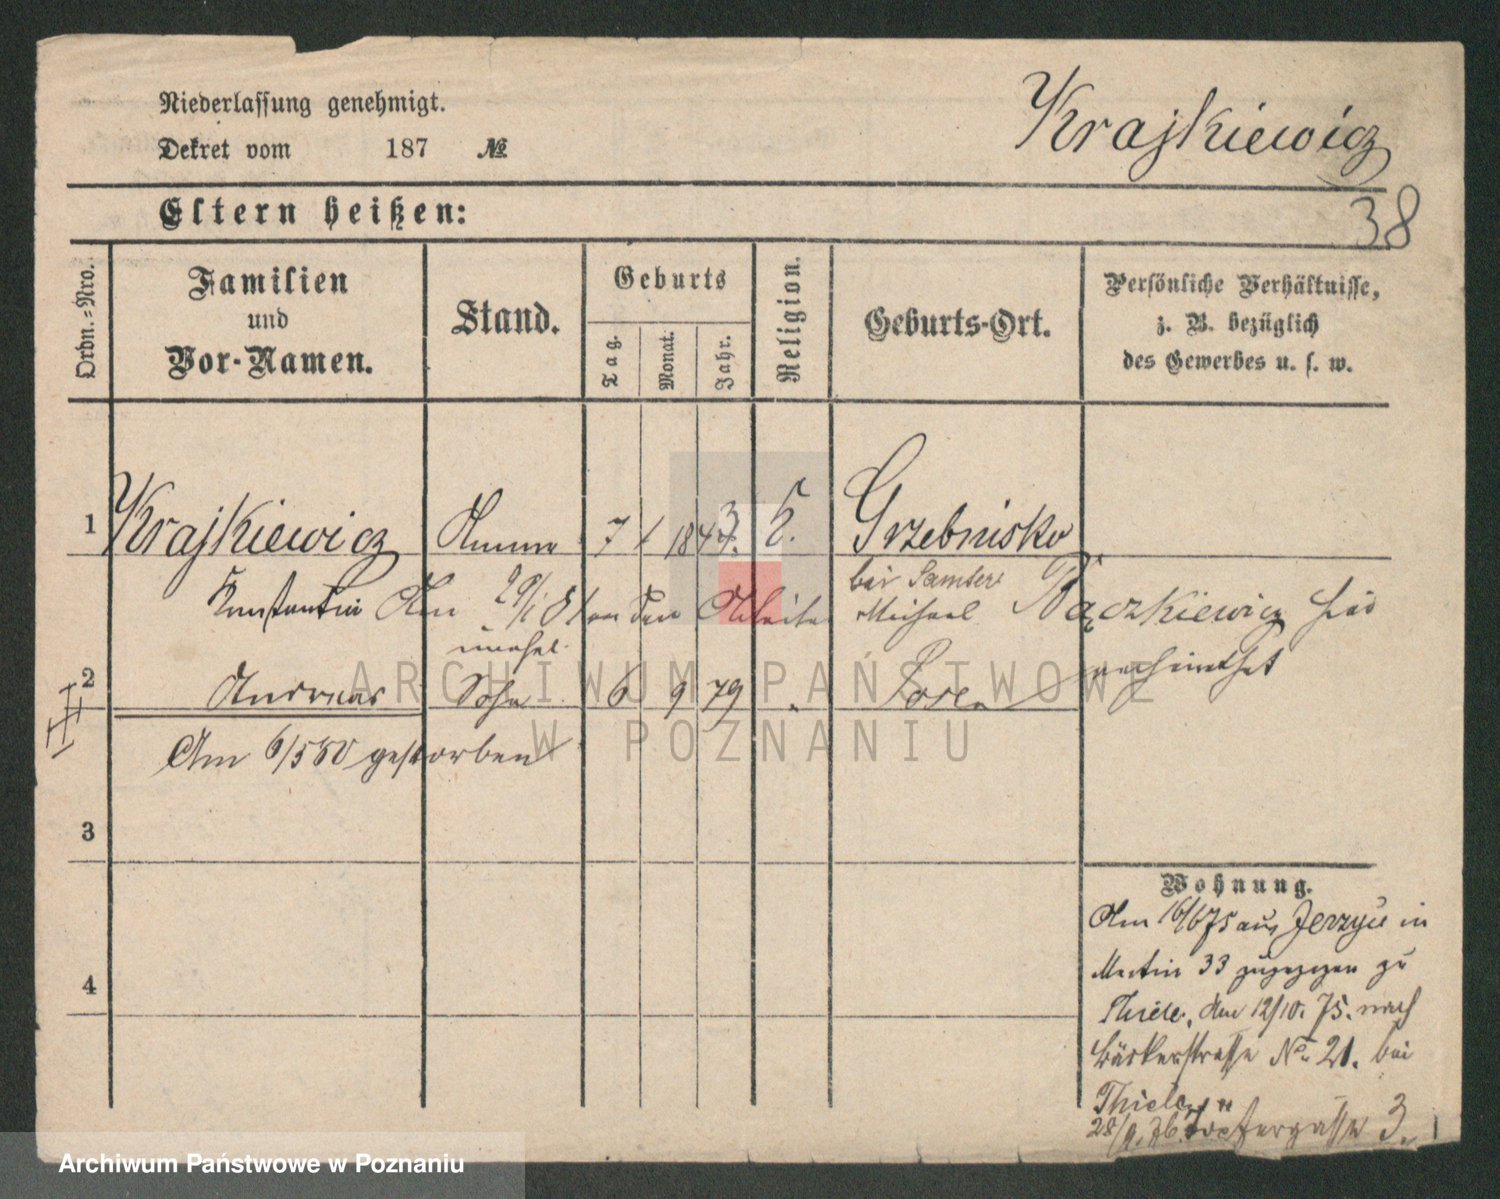 Niederlassung genehmigt.
Krajkiewicz
Dekret vom 187 №
Eltern heißen:
38
Ordn.-Nro.
Familien
und
Vor-Namen.
Stand.
Geburts
Tag.
Monat.
Jahr.
Religion.
Geburts-Ort.
Persönliche Verhältnisse,
z. B. bezüglich
des Gewerbes u. s. w.
1 Krajkiewicz Amme 7 1 1843. k. Grzebnisko
bei Samter
Konstantin Am 29/1 81 an den Arbeiter Michael Bączkiewicz sich
verheirathet
unehel.
2 Andreas Sohn 6 9 79 Posen
Am 6/5 80 gestorben
3
4
Wohnung.
Am 16/6 75 aus Jerzyce in
Martin 33 zugezogen zu
Thiele, den 12/10. 75. nach
Bäckerstrasse No 21. bei
Thiele
28/9. 76 Töpfergasse 3.
ARCHIWUM PAŃSTWOWE
W POZNANIU
Archiwum Państwowe w Poznaniu